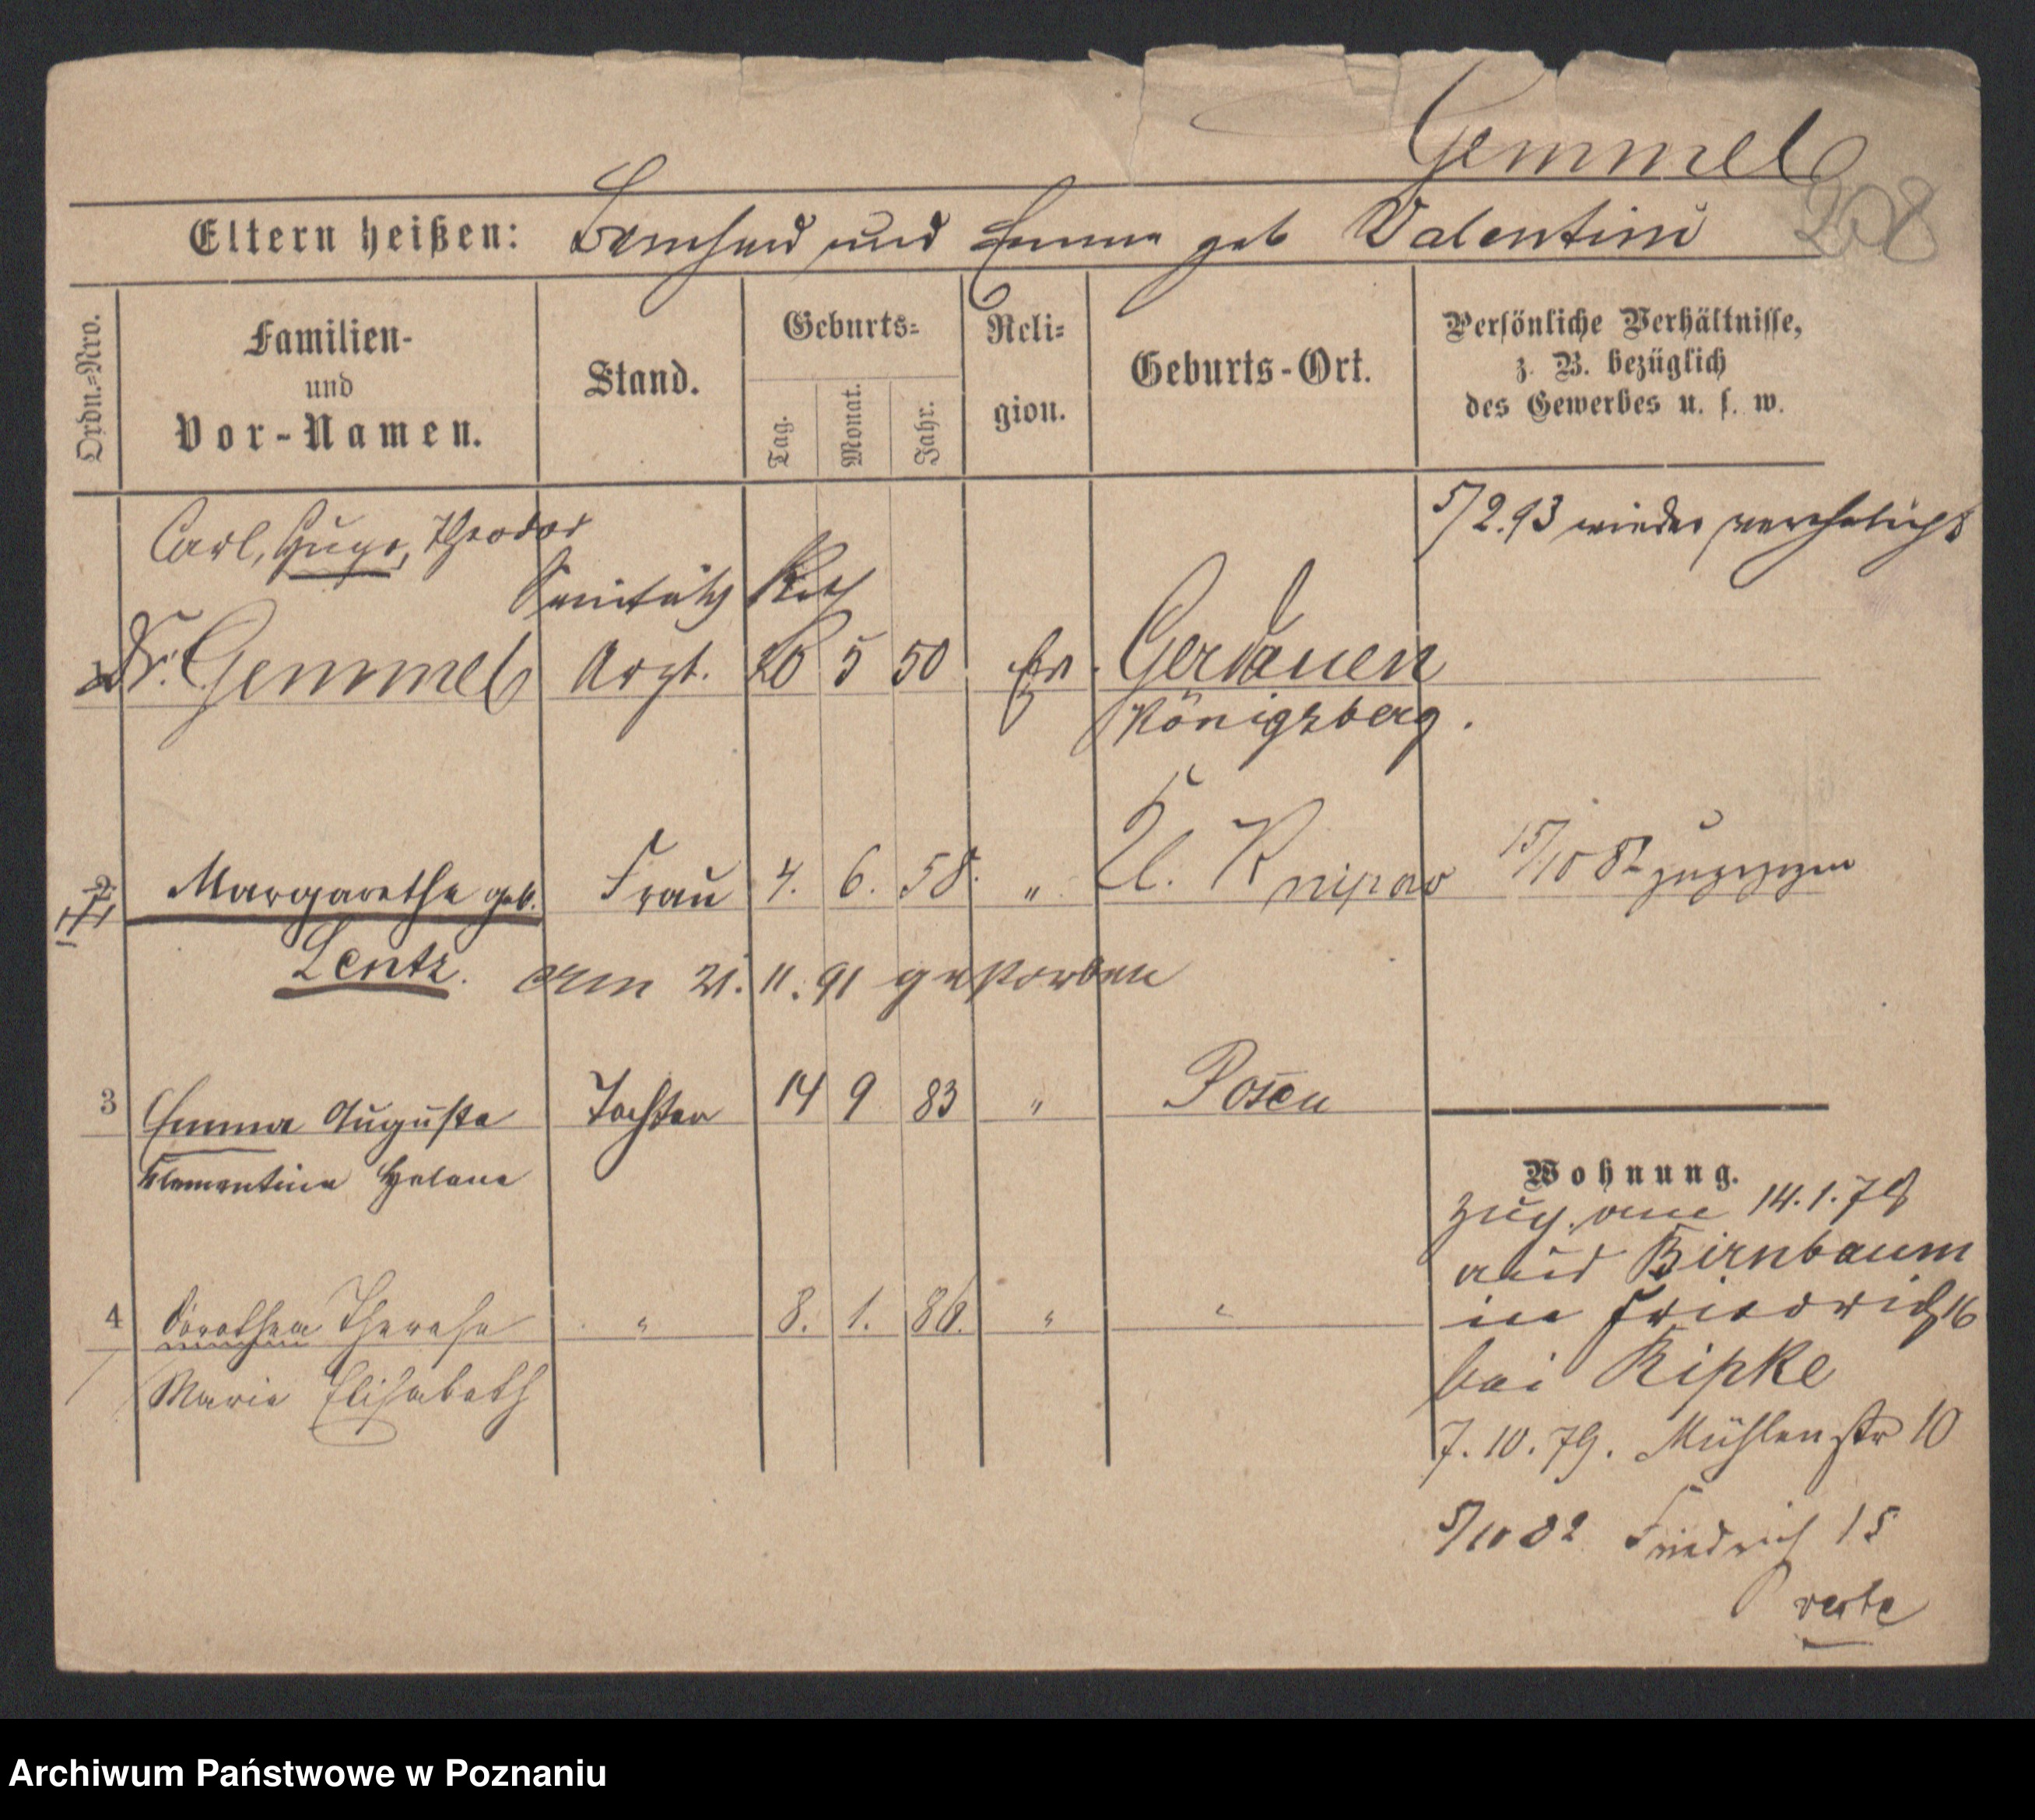 Gemmel
208
Eltern heißen: Bernhard und Emma geb Valentini
Ordn.=Nro.
Familien-
und
Vor-Namen.
Stand.
Geburts=
Tag.
Monat.
Jahr.
Reli=
gion.
Geburts-Ort.
Persönliche Verhältnisse,
z. B. bezüglich
des Gewerbes u. s. w.
5/2.93 wieder verehelicht
Carl, Hugo, Theodor
Sanitäts Rath
1 Dr. Gemmel Arzt. 5 50 Ev. Gerdauen
Königsberg.
2 Margarethe geb. Frau 4. 6. 58. " Kl. Knipow 15/10 82 zugezogen
Lentz. am 21. 11. 91 gestorben
3 Emma Auguste Tochter 14 9 83 " Posen
Klementine Helene
Wohnung.
zug. am 14.1.78
aus Birnbaum
in Friedrich 16
bei Ripke
4 Dorothea Therese " 8. 1. 86. " "
Marie Elisabeth
7. 10. 79. Mühlenstr 10
5/10 82 Friedrich 15
verte
Archiwum Państwowe w Poznaniu